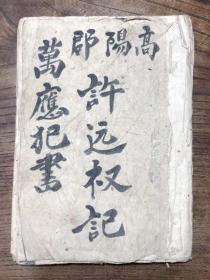 高陽郡
許远权記
萬應犯書